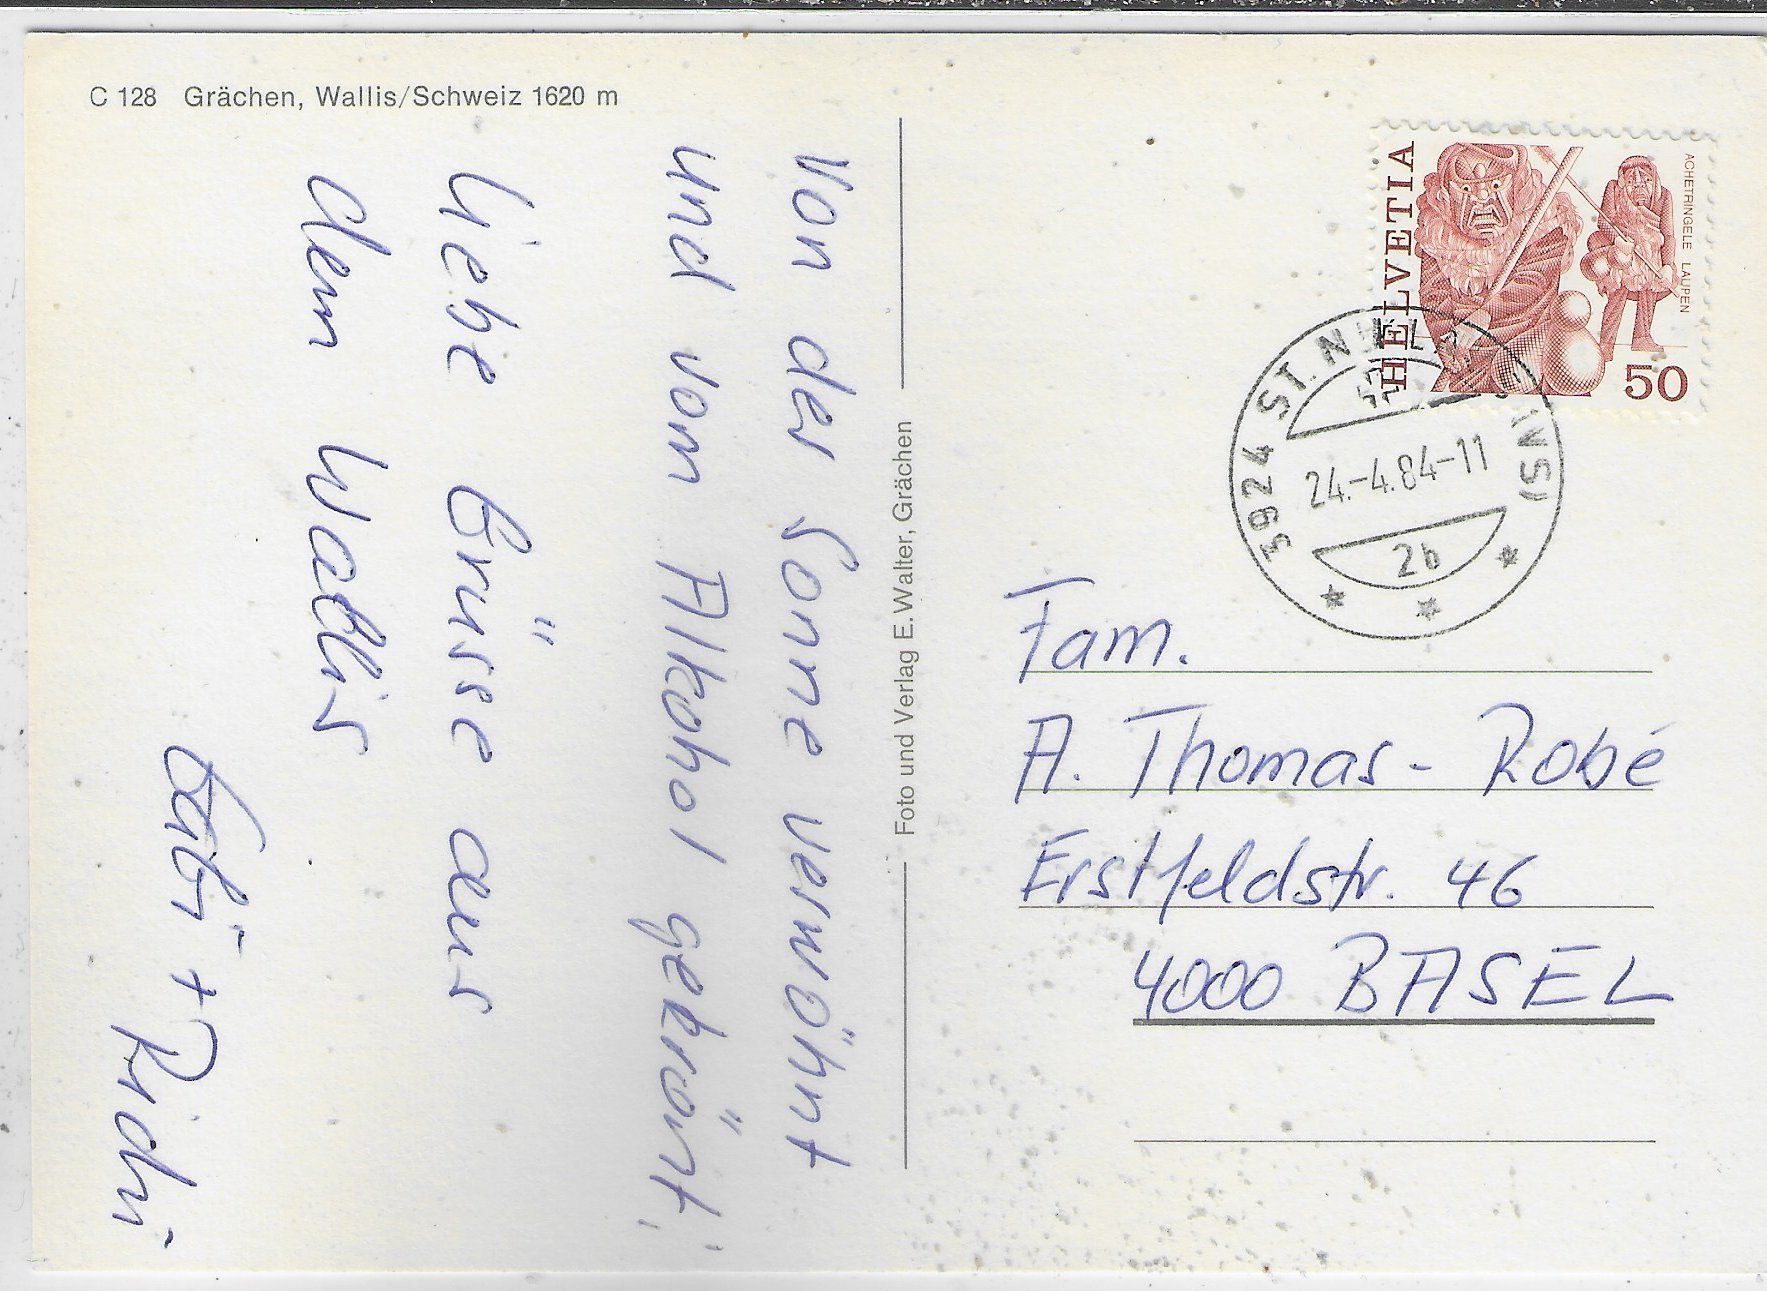 C 128 Grächen, Wallis/Schweiz 1620 m
Von der Sonne verwöhnt
und vom Alkohol gekrönt,
liebe Grüsse aus
dem Wallis
Gabi + Richi
Foto und Verlag E. Walter, Grächen
HELVETIA
ACHETRINGELE LAUPEN
50
3924 ST. NIKLAUS (VS)
24.-4.84-11
2b
Fam.
A. Thomas - Robé
Erstfeldstr. 46
4000 BASEL